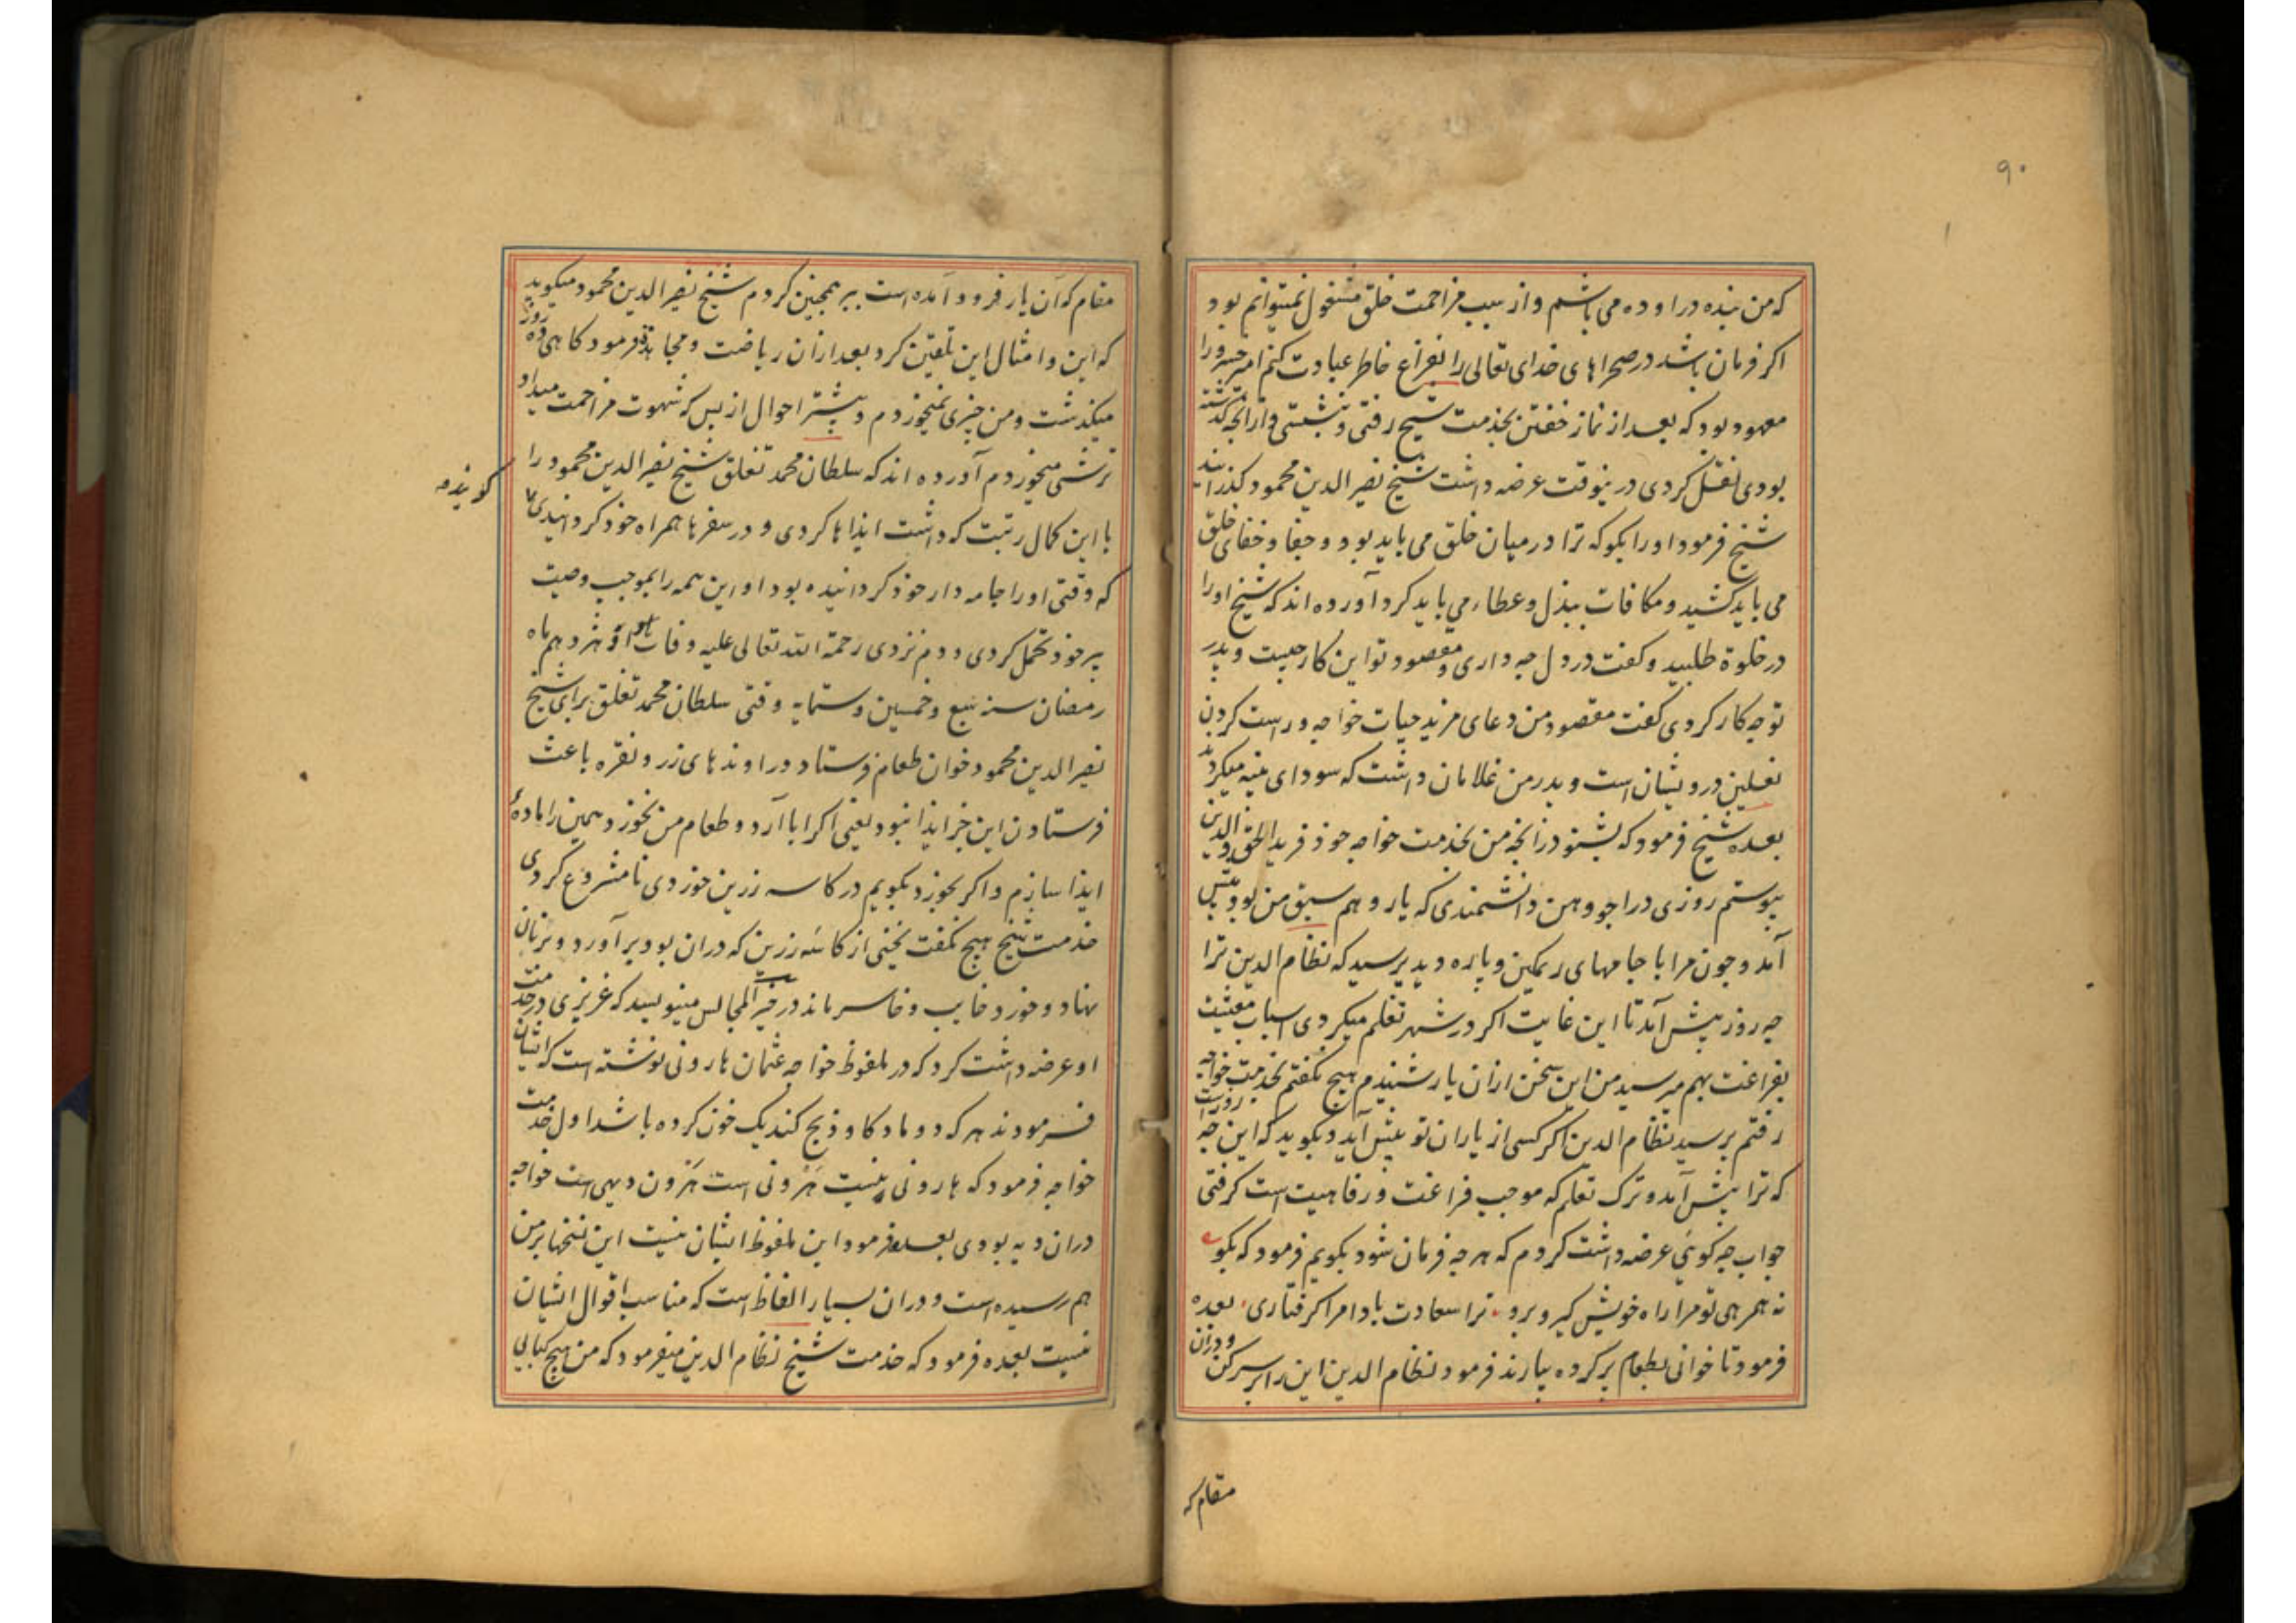 ۹۰
که من بنده در اوده می باشم و از سبب مزاحمت خلق مشغول نمیتوانم بود
اکر فرمان باشد در صحراهای خدای تعالی را بفراغ خاطر عبادت کنم امیر خسرو را
معهود بود که بعد از نماز خفتن بخدمت شیخ رفتی و نشستی و از انجه کذشته
بودی نقل کردی درینوقت عرضه داشت شیخ نصیر الدین محمود کذرانید
شیخ فرمود او را بکو که ترا در میان خلق می باید بود و جفا و خفای خلق
می باید کشید و مکافات ببذل و عطا می باید کرد آورده اند که شیخ او را
در خلوة طلبید و کفت در دل چه داری و مقصود تو این کار چیست و پدر
تو چه کار کردی کفت مقصود من دعای مزید حیات خواجه و راست کردن
نعلین درویشان است و پدر من غلامان داشت که سودای پنبه میکردند
بعده شیخ فرمود که بشنو درانچه من بخدمت خواجه خود فرید الحق والدین
پیوستم روزی در اجودهن دانشمندی که یار و هم سبق من بود پیش
آمد و چون مرا با جامهای ریمکین و پاره دید پرسید که نظام الدین ترا
چه روز پیش آمد تا این غایت اکر در شهر تعلم میکردی اسباب معیشت
بفراغت بهم میرسید من این سخن ازان یار شنیدم هیچ نکفتم بخدمت خواجه
رفتم پرسید نظام الدین اکر کسی از یاران تو پیش آید و بکوید که این چه روزست
که ترا پیش آمد و ترک تعلم که موجب فراغت و رفاهیت است کرفتی
جواب چه کوئی عرضه داشت کردم که هر چه فرمان شود بکویم فرمود که بکوی
نه همرهی تو مرا راه خویش کیر و برو ترا سعادت بادا مرا کرفتاری بعده
فرمود تا خوانی بطعام پر کرده بیارند فرمود نظام الدین این را بر سر کن و دران
مقام که
مقام که آن یار فرود آمده است ببر همچنین کردم شیخ نصیر الدین محمود میکوید
که این و امثال این تلقین کرد بعد ازان ریاضت و مجاهده فرمود کاهی ده روز
میکذشت و من چیزی نمیخوردم و بیشتر احوال از بس که شهوت مزاحمت میداد
ترشی میخوردم آورده اند که سلطان محمد تغلق شیخ نصیر الدین محمود را
با این کمال رتبت که داشت ایذاها کردی و در سفرها همراه خود کردانیدی
کویند
که وقتی او را جامه دار خود کردانیده بود او این همه را بموجب وصیت
پیر خود تحمل کردی و دم نزدی رحمة الله تعالی علیه وفات او هژدهم ماه
رمضان سنه سبع و خمسین و ستمایه وقتی سلطان محمد تغلق برای شیخ
نصیر الدین محمود خوان طعام فرستاد در اوندهای زر و نقره باعث
فرستادن این جز ایذا نبود یعنی اکر ابا آرد و طعام من نخورد همین را ماده
ایذا سازم و اکر بخورد بکویم در کاسه زرین خوردی نامشروع کردی
خدمت شیخ هیچ نکفت یخنی از کاسه زرین که دران بود برآورد و بر نان
نهاد و خورد خایب و خاسر ماند در خیر المجالس مینویسد که عزیزی در خدمت
او عرضه داشت کرد که در ملفوظ خواجه عثمان هارونی نوشته است که ایشان
فرمودند هر که دو ماده کاو ذبح کند یک خون کرده باشد اول خدمت
خواجه فرمود که هارونی نیست هَرونی است هَرون دیهی است خواجه
دران دیه بودی بعده فرمود این ملفوظ ایشان نیست این نسخها بر من
هم رسیده است و دران بسیار الفاظ است که مناسب اقوال ایشان
نیست بعده فرمود که خدمت شیخ نظام الدین میفرمود که من هیچ کتابی